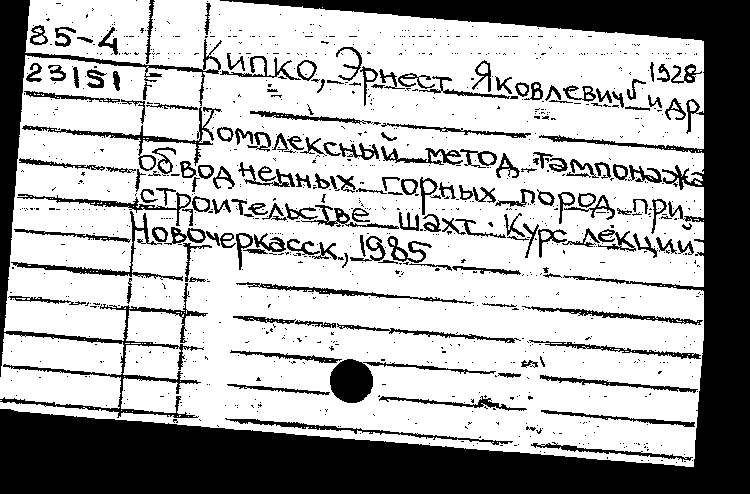 85-4
23151 =
Кипко, Эрнест Яковлевич и др
1928
Комплексный метод тампонажа
обводненных горных пород при
строительстве шахт. Курс лекций
Новочеркасск, 1985